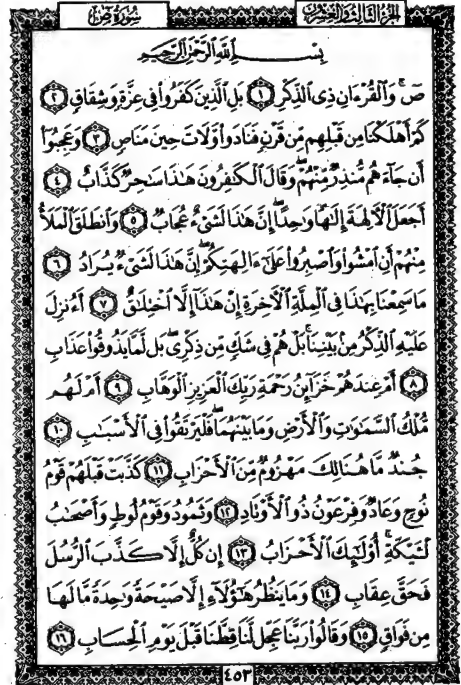 سُورَةُ صٓ
الجُزْءُ الثَّالِثُ وَالعِشْرُونَ
بِسْمِ ٱللَّهِ ٱلرَّحْمَٰنِ ٱلرَّحِيمِ
صٓ ۚ وَٱلْقُرْءَانِ ذِى ٱلذِّكْرِ ١ بَلِ ٱلَّذِينَ كَفَرُوا۟ فِى عِزَّةٍ وَشِقَاقٍ ٢
كَمْ أَهْلَكْنَا مِن قَبْلِهِم مِّن قَرْنٍ فَنَادَوا۟ وَّلَاتَ حِينَ مَنَاصٍ ٣ وَعَجِبُوٓا۟
أَن جَآءَهُم مُّنذِرٌ مِّنْهُمْ ۖ وَقَالَ ٱلْكَٰفِرُونَ هَٰذَا سَٰحِرٌ كَذَّابٌ ٤
أَجَعَلَ ٱلْءَالِهَةَ إِلَٰهًا وَٰحِدًا ۖ إِنَّ هَٰذَا لَشَىْءٌ عُجَابٌ ٥ وَٱنطَلَقَ ٱلْمَلَأُ
مِنْهُمْ أَنِ ٱمْشُوا۟ وَٱصْبِرُوا۟ عَلَىٰٓ ءَالِهَتِكُمْ ۖ إِنَّ هَٰذَا لَشَىْءٌ يُرَادُ ٦
مَا سَمِعْنَا بِهَٰذَا فِى ٱلْمِلَّةِ ٱلْءَاخِرَةِ إِنْ هَٰذَآ إِلَّا ٱخْتِلَٰقٌ ٧ أَءُنزِلَ
عَلَيْهِ ٱلذِّكْرُ مِنۢ بَيْنِنَا ۚ بَلْ هُمْ فِى شَكٍّ مِّن ذِكْرِى ۖ بَل لَّمَّا يَذُوقُوا۟ عَذَابِ
٨ أَمْ عِندَهُمْ خَزَآئِنُ رَحْمَةِ رَبِّكَ ٱلْعَزِيزِ ٱلْوَهَّابِ ٩ أَمْ لَهُم
مُّلْكُ ٱلسَّمَٰوَٰتِ وَٱلْأَرْضِ وَمَا بَيْنَهُمَا ۖ فَلْيَرْتَقُوا۟ فِى ٱلْأَسْبَٰبِ ١٠
جُندٌ مَّا هُنَالِكَ مَهْزُومٌ مِّنَ ٱلْأَحْزَابِ ١١ كَذَّبَتْ قَبْلَهُمْ قَوْمُ
نُوحٍ وَعَادٌ وَفِرْعَوْنُ ذُو ٱلْأَوْتَادِ ١٢ وَثَمُودُ وَقَوْمُ لُوطٍ وَأَصْحَٰبُ
لْـَٔيْكَةِ ۚ أُو۟لَٰٓئِكَ ٱلْأَحْزَابُ ١٣ إِن كُلٌّ إِلَّا كَذَّبَ ٱلرُّسُلَ
فَحَقَّ عِقَابِ ١٤ وَمَا يَنظُرُ هَٰٓؤُلَآءِ إِلَّا صَيْحَةً وَٰحِدَةً مَّا لَهَا
مِن فَوَاقٍ ١٥ وَقَالُوا۟ رَبَّنَا عَجِّل لَّنَا قِطَّنَا قَبْلَ يَوْمِ ٱلْحِسَابِ ١٦
٤٥٣